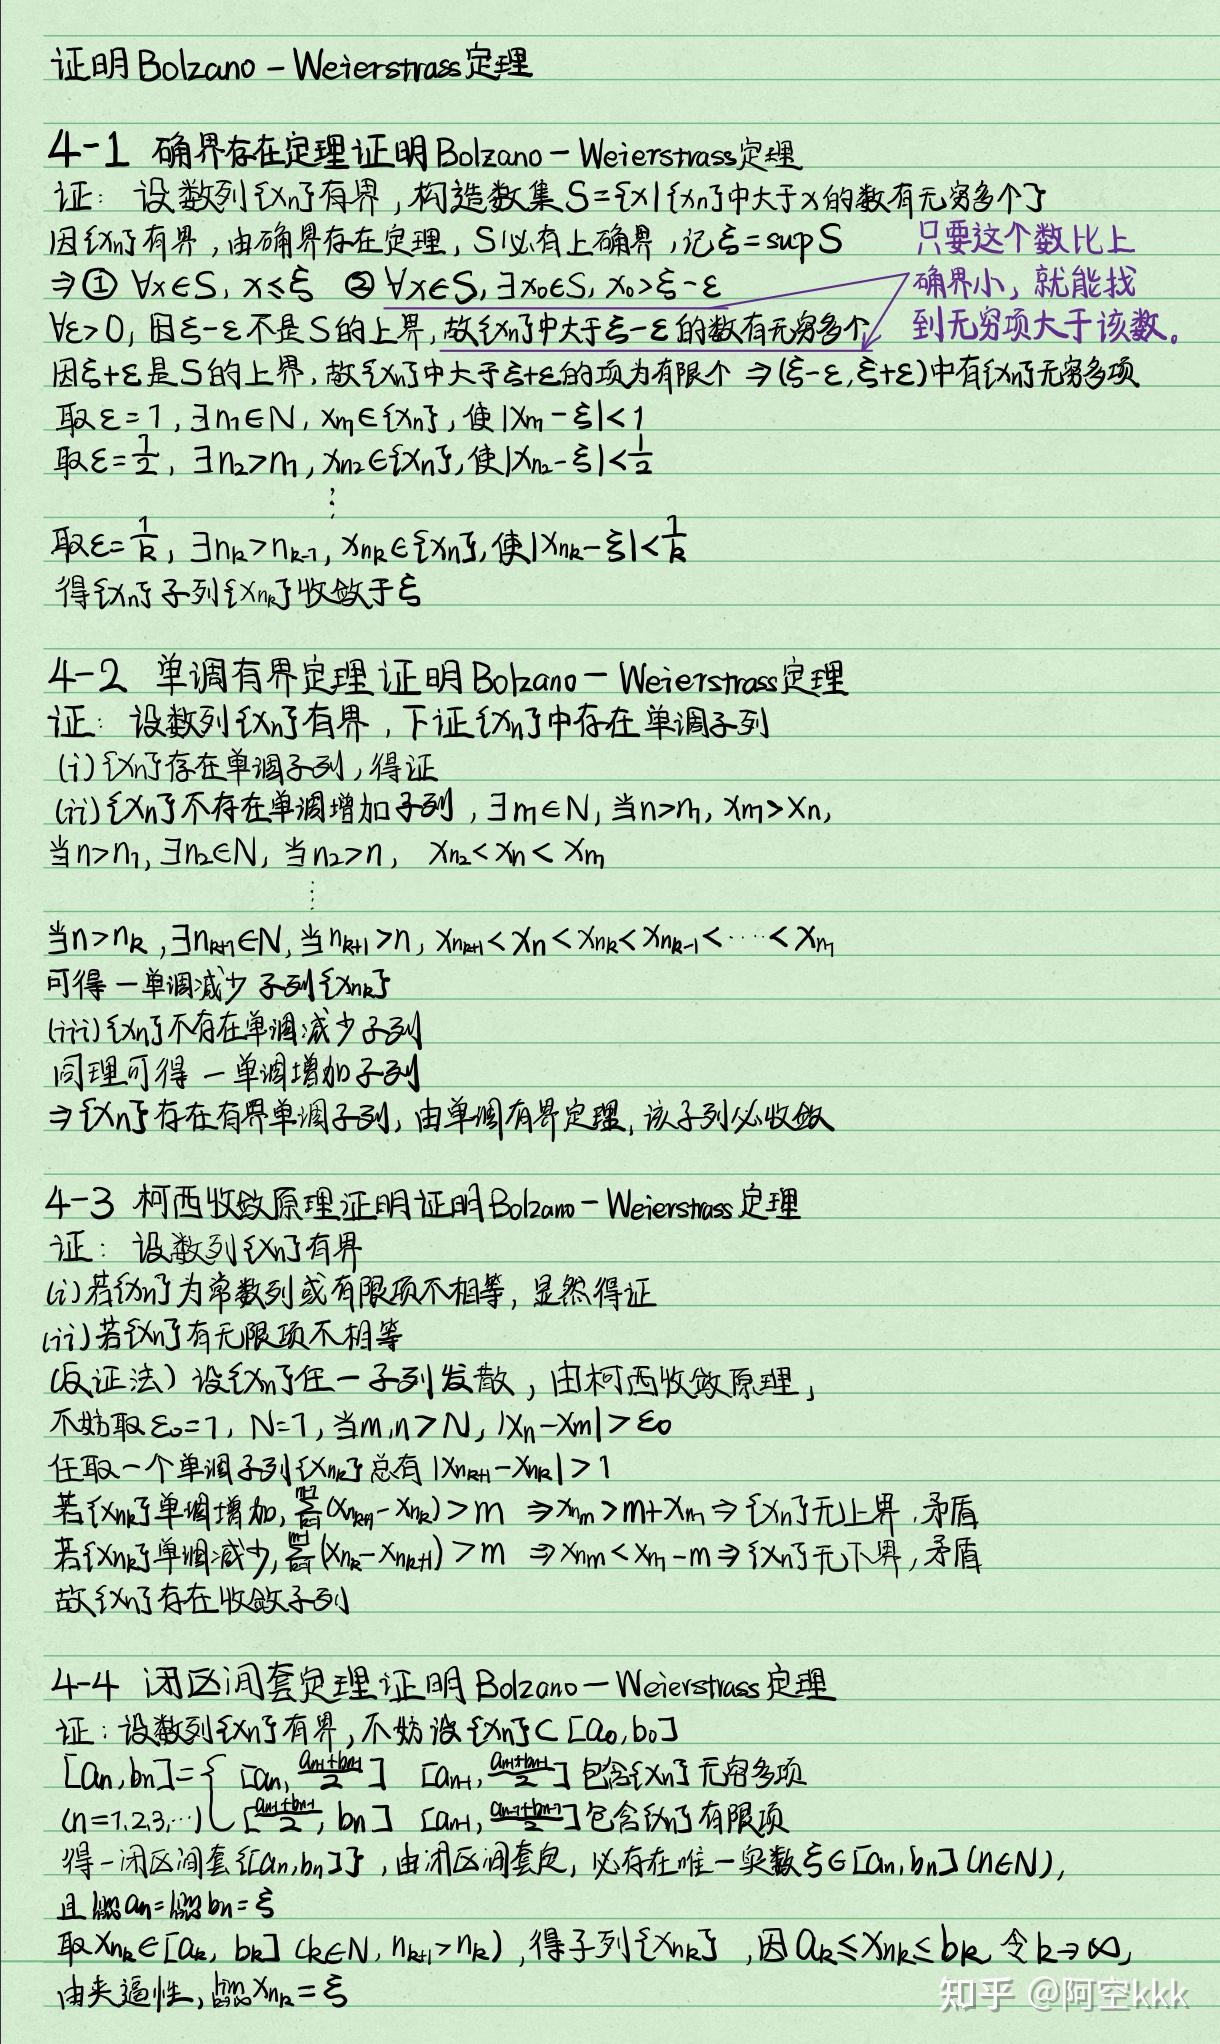 证明Bolzano－Weierstrass定理
4-1 确界存在定理证明Bolzano－Weierstrass定理
证：设数列{xn}有界，构造数集S={x|{xn}中大于x的数有无穷多个}
因{xn}有界，由确界存在定理，S必有上确界，记ξ=supS
只要这个数比上
⇒① ∀x∈S, x≤ξ ② ∀x∈S, ∃x₀∈S, x₀>ξ-ε
确界小，就能找
∀ε>0, 因ξ-ε不是S的上界,故{xn}中大于ξ-ε的数有无穷多个
到无穷项大于该数。
因ξ+ε是S的上界,故{xn}中大于ξ+ε的项为有限个 ⇒(ξ-ε,ξ+ε)中有{xn}无穷多项
取ε=1, ∃n₁∈N, xn₁∈{xn}, 使|xn₁-ξ|<1
取ε=1/2, ∃n₂>n₁, xn₂∈{xn}, 使|xn₂-ξ|<1/2
⋮
取ε=1/k, ∃nk>nk-1, xnk∈{xn}, 使|xnk-ξ|<1/k
得{xn}子列{xnk}收敛于ξ
4-2 单调有界定理证明Bolzano－Weierstrass定理
证：设数列{xn}有界，下证{xn}中存在单调子列
(i){xn}存在单调子列,得证
(ii){xn}不存在单调增加子列，∃n₁∈N, 当n>n₁, xn₁>xn,
当n>n₁, ∃n₂∈N, 当n₂>n, xn₂<xn<xn₁
⋮
当n>nk, ∃nk+1∈N, 当nk+1>n, xnk+1<xn<xnk<xnk-1<⋯<xn₁
可得一单调减少子列{xnk}
(iii){xn}不存在单调减少子列
同理可得一单调增加子列
⇒{xn}存在有界单调子列,由单调有界定理,该子列必收敛
4-3 柯西收敛原理证明证明Bolzano－Weierstrass定理
证：设数列{xn}有界
(i)若{xn}为常数列或有限项不相等，显然得证
(ii)若{xn}有无限项不相等
(反证法）设{xn}任一子列发散，由柯西收敛原理,
不妨取ε₀=1, N=1, 当m,n>N, |xn-xm|>ε₀
任取一个单调子列{xnk}总有|xnk+1-xnk|>1
若{xnk}单调增加, ∑(xnk+1-xnk)>m ⇒xnm>m+xn₁⇒{xn}无上界,矛盾
若{xnk}单调减少, ∑(xnk-xnk+1)>m ⇒xnm<xn₁-m⇒{xn}无下界,矛盾
故{xn}存在收敛子列
4-4 闭区间套定理证明Bolzano－Weierstrass定理
证：设数列{xn}有界,不妨设{xn}⊂[a₀,b₀]
[an,bn]={ [an, (an-1+bn-1)/2] [an-1, (an-1+bn-1)/2]包含{xn}无穷多项
(n=1,2,3,⋯) [(an-1+bn-1)/2, bn] [an-1, (an-1+bn-1)/2]包含{xn}有限项
得一闭区间套{[an,bn]}，由闭区间套定，必存在唯一实数ξ∈[an,bn](n∈N),
且lim an=lim bn=ξ
取xnk∈[ak, bk] (k∈N, nk+1>nk)，得子列{xnk}，因ak≤xnk≤bk,令k→∞,
由夹逼性, lim xnk=ξ
知乎 @阿空kkk